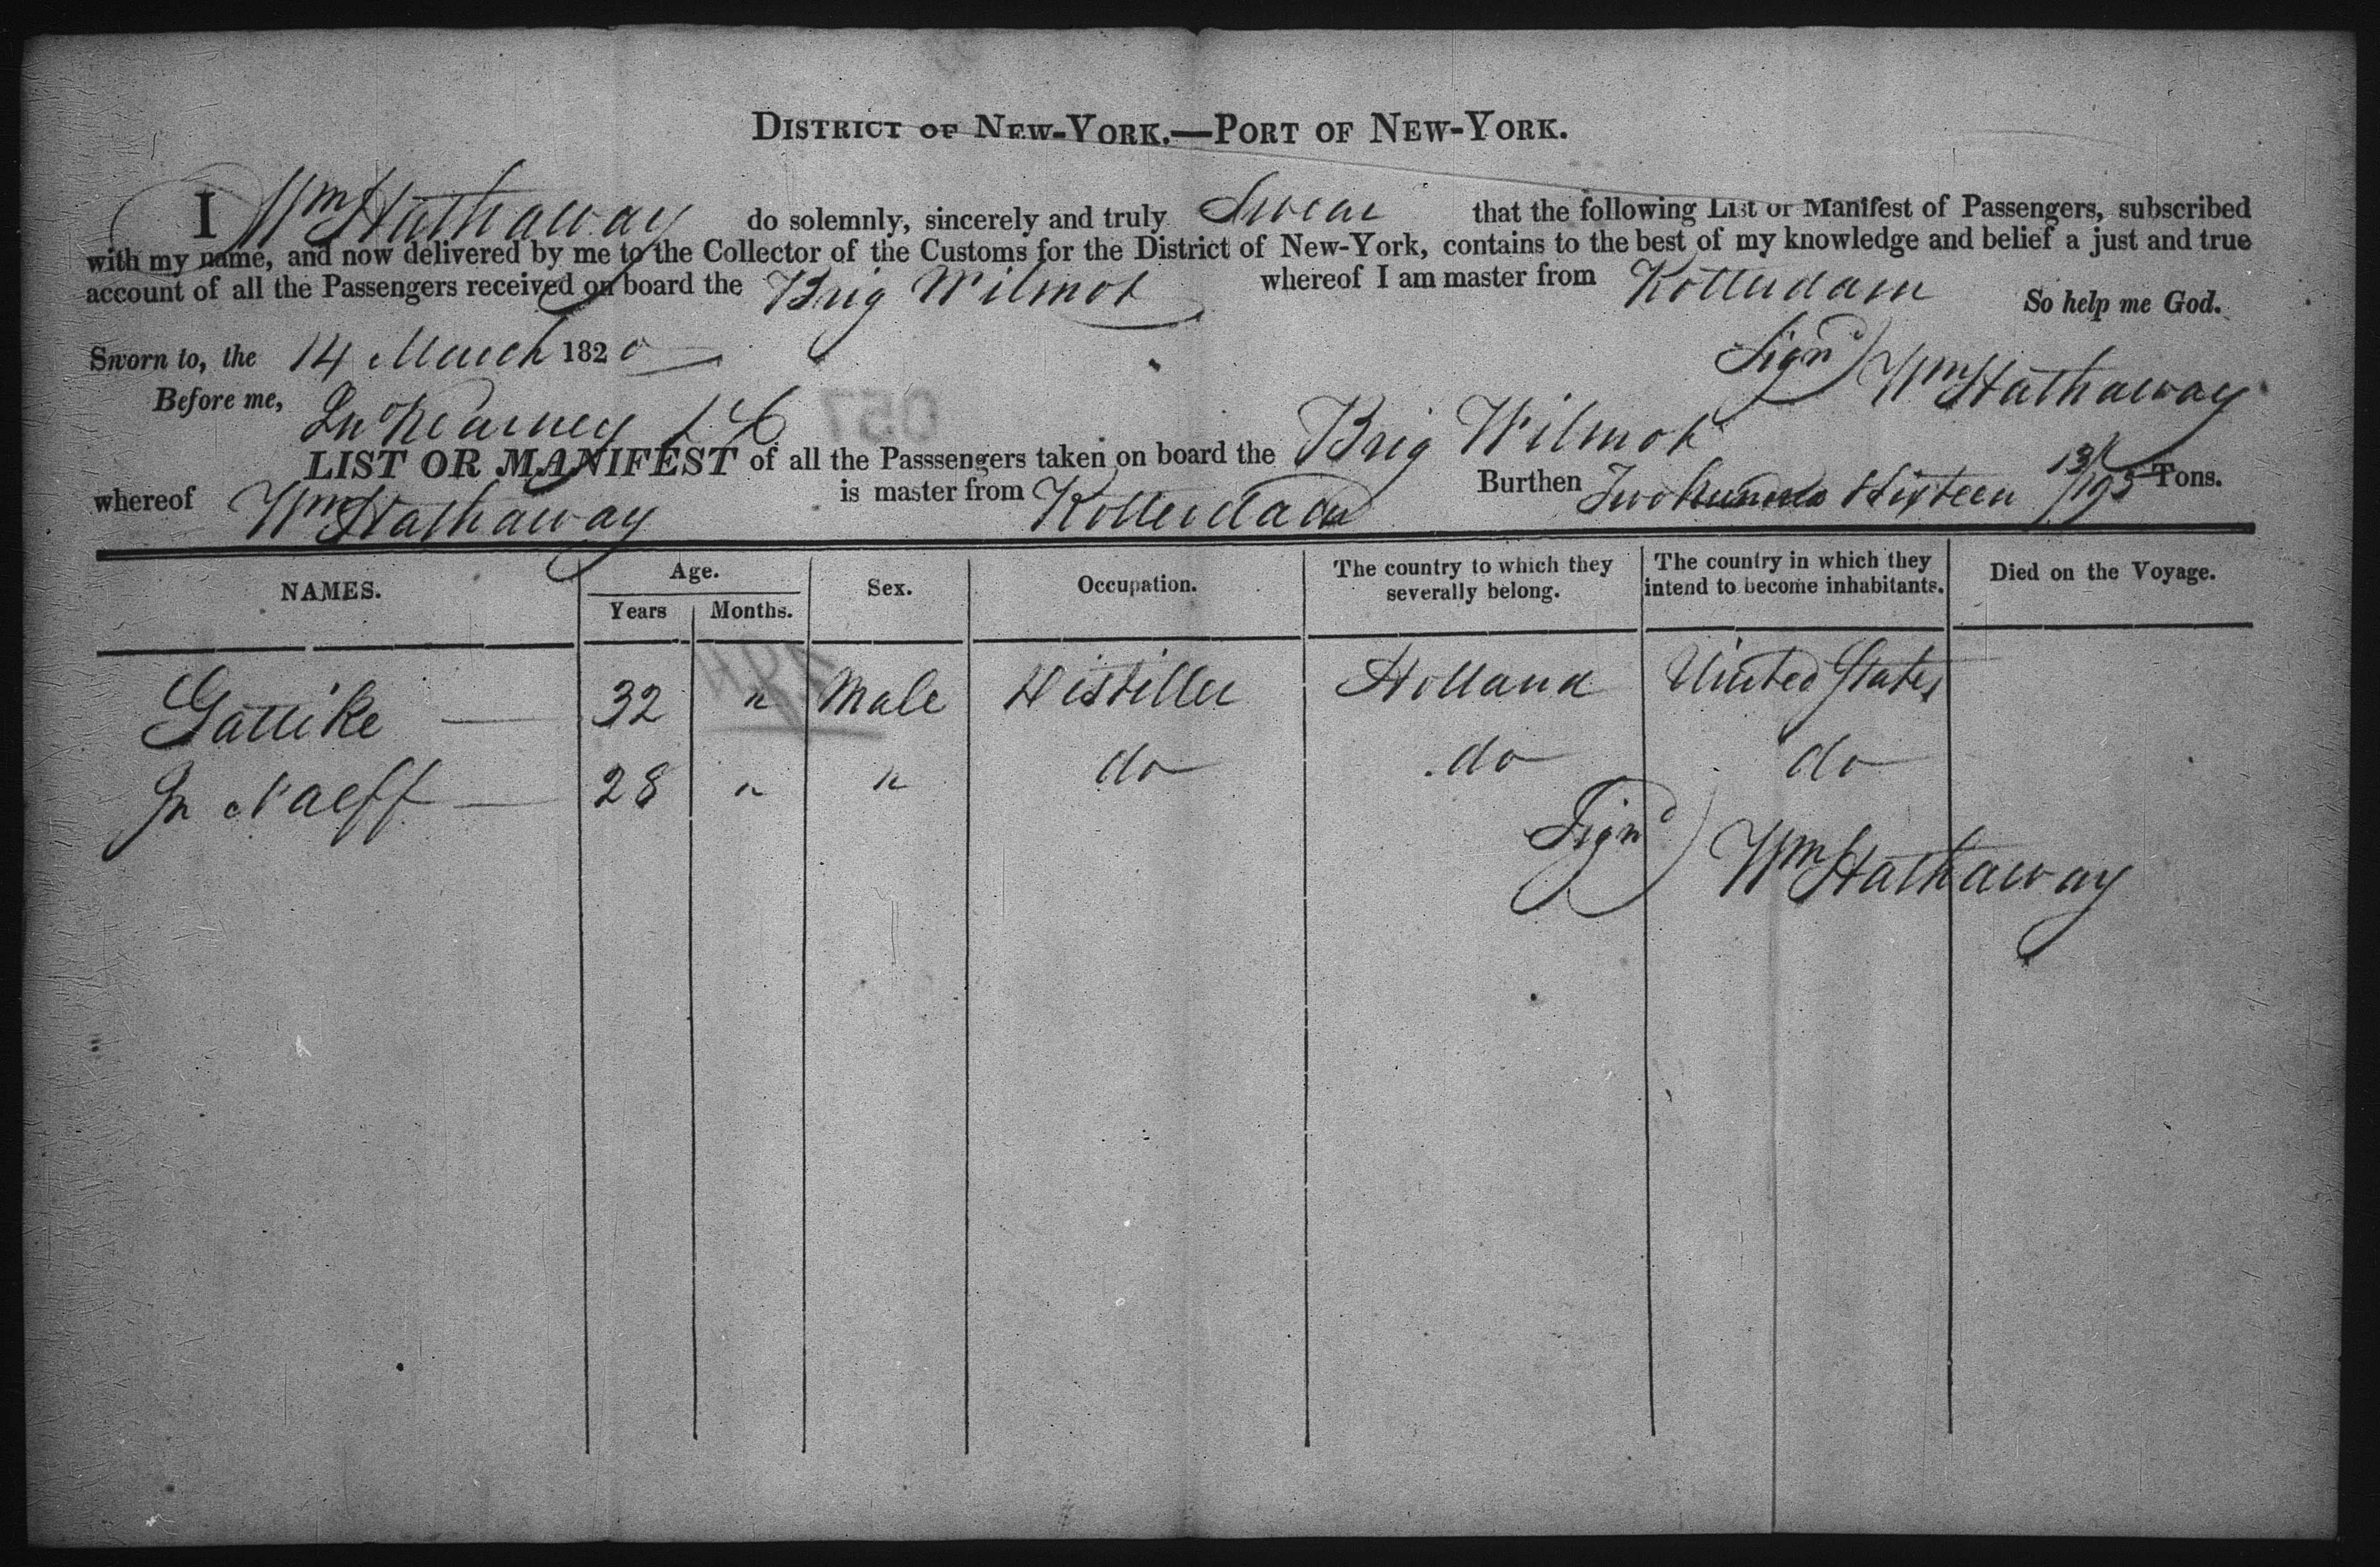 DISTRICT OF NEW-YORK.—PORT OF NEW-YORK.
I Wm Hathaway do solemnly, sincerely and truly Swear that the following List or Manifest of Passengers, subscribed
with my name, and now delivered by me to the Collector of the Customs for the District of New-York, contains to the best of my knowledge and belief a just and true
account of all the Passengers received on board the Brig Wilmot whereof I am master from Rotterdam So help me God.
Sworn to, the 14 March 1820 Signd Wm Hathaway
Before me,
057
LIST OR MANIFEST of all the Passsengers taken on board the Brig Wilmot
whereof Wm Hathaway is master from Rotterdam Burthen Two hundred Sixteen /95 Tons.
NAMES. Age. Sex. Occupation. The country to which they severally belong. The country in which they intend to become inhabitants. Died on the Voyage.
Years Months.
Gattike — 32 " Male Distiller Holland United States
Jn Naeff — 28 " " do do do
Signd Wm Hathaway